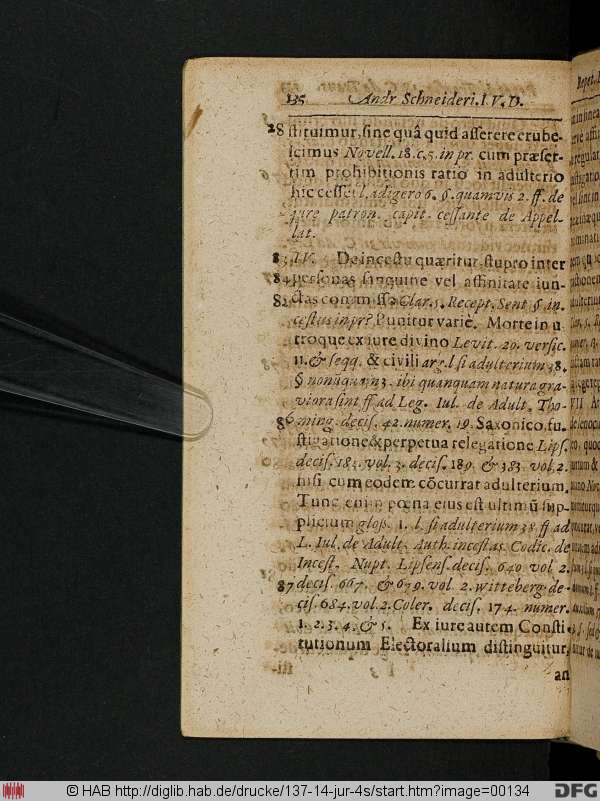 135 Andr Schneideri. I. V. D.
28 stituimur, sine quâ quid asserere erube-
scimus Novell. 18. c. 5. in pr. cum præser-
tim prohibitionis ratio in adulterio
hic cesset l. adigere 6. §. quamvis 2. ff. de
jure patron. capit. cessante de Appel-
lat.
83 IV. De incestu quæritur, stupro inter
84 personas sanguine vel affinitate iun-
82 ctas commisso Clar. 5. Recept. Sent §. in-
cestus in pr? Punitur variè. Morte in u
troque ex iure divino Levit. 20. versic.
11. & seqq. & civili arg. l si adulterium 38.
§ nonũquam 3. ibi quanquam natura gra-
viora sint ff ad Leg. Iul. de Adult. Tho-
86 ming. decis. 42. numer. 19. Saxonico, fu-
stigatione & perpetua relegatione Lips.
decis. 183. vol. 3. decis. 189. & 383. vol. 2.
nisi cum eodem cõcurrat adulterium.
Tunc enim pœna eius est ultimũ sup-
plicium gloss. 1. l. si adulterium 38. ff ad
L. Iul. de Adult. Auth. incestas. Codic. de
Incest. Nupt. Lipsens. decis. 640 vol 2.
87 decis. 667. & 679. vol. 2. witteberg. de-
cis. 684. vol. 2. Coler. decis. 174. numer.
1. 2. 3. 4. & 5. Ex iure autem Consti
tutionum Electoralium distinguitur,
an
© HAB http://diglib.hab.de/drucke/137-14-jur-4s/start.htm?image=00134
DFG